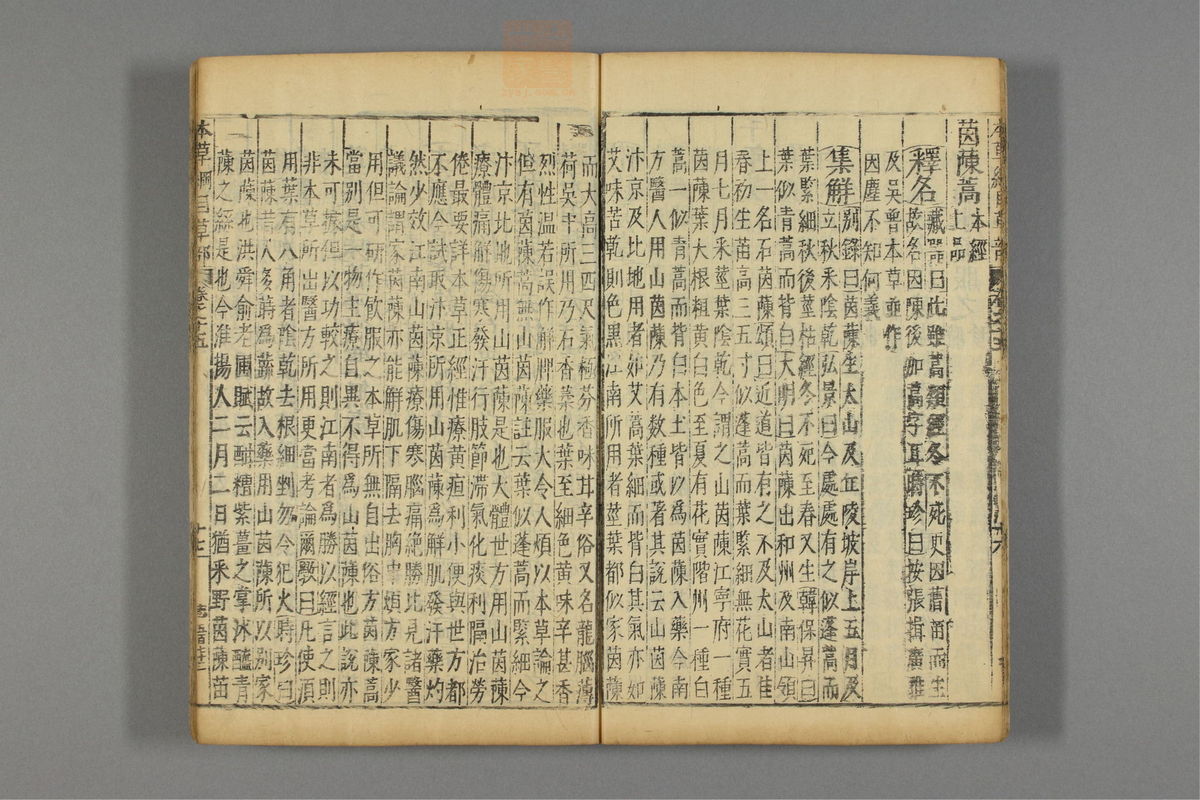 茵蔯蒿本經上品
釋名藏器曰此雖蒿類經冬不死更因舊苗而生
故名因陳後加蒿字耳時珍曰按張揖廣雅
及吳普本草並作
因塵不知何義
集解別錄曰茵蔯生太山及丘陵坡岸上五月及
立秋釆陰乾弘景曰今處處有之似蓬蒿而
葉緊細秋後莖枯經冬不死至春又生韓保昇曰
葉似青蒿而背白大明曰茵蔯出和州及南山嶺
上一名石茵蔯頌曰近道皆有之不及太山者佳
春初生苗高三五寸似蓬蒿而葉緊細無花實五
月七月釆莖葉陰乾今謂之山茵蔯江寧府一種
茵蔯葉大根粗黃白色至夏有花實階州一種白
蒿一似青蒿而背白本土皆以爲茵蔯入藥今南
方醫人用山茵蔯乃有数種或著其說云山茵蔯
汴京及北地用者如艾蒿葉細而背白其氣亦如
艾味苦乾則色黑江南所用者莖葉都似家茵蔯
而大高三四尺氣極芬香味甘辛俗又名龍腦薄
荷吳中所用乃石香葇也葉至細色黄味辛甚香
烈性温若誤作解脾藥服大令人煩以本草論之
但有茵蔯蒿無山茵蔯註云葉似蓬蒿而緊細今
汴京北地所用山茵蔯是也大體世方用山茵蔯
療體痛解傷寒發汗行肢節滯氣化痰利膈治勞
倦最要詳本草正經惟療黄疸利小便與世方都
不應今試取汴京所用山茵蔯爲解肌發汗藥灼
然少效江南山茵蔯療傷寒腦痛絶勝此見諸醫
議論謂家茵蔯亦能解肌下膈去胸中煩方家少
用但可研作飲服之本草所無自出俗方茵蔯蒿
當别是一物主療自異不得爲山茵蔯也此說亦
未可據但以功較之則江南者爲勝以經言之則
非本草所出醫方所用更當考論爾斆曰凡使須
用葉有八角者陰乾去根細剉勿令犯火時珍曰
茵蔯昔人多蒔爲蔬故入藥用山茵蔯所以别家
茵蔯也洪舜俞老圃賦云酣糟紫薑之掌沐醯青
蔯之絲是也今淮揚人二月二日猶釆野茵蔯苗
本草綱目草部 卷之十五